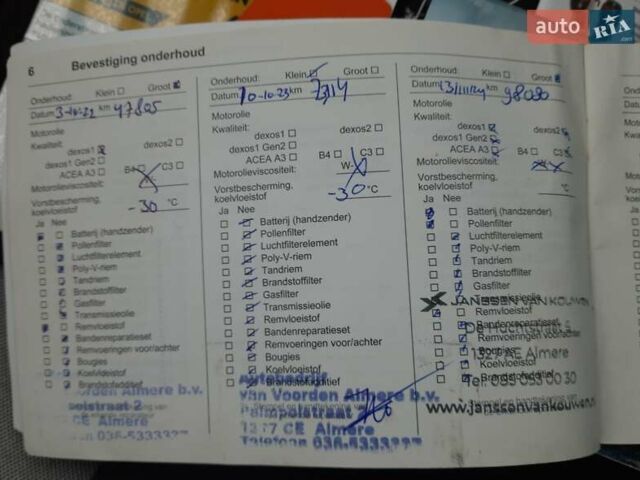 auto RIA
.com
6 Bevestiging onderhoud
Onderhoud: Klein Groot
Datum 3-10-22 km 47805
Motorolie
Kwaliteit:
dexos1 dexos2
dexos1 Gen2
ACEA A3 B4 C3
Motorolieviscositeit:
Vorstbescherming,
koelvloeistof -30 °C
Ja Nee
Batterij (handzender)
Pollenfilter
Luchtfilterelement
Poly-V-riem
Tandriem
Brandstoffilter
Gasfilter
Transmissieolie
Remvloeistof
Bandenreparatieset
Remvoeringen voor/achter
Bougies
Koelvloeistof
Brandstofadditief
Voorden Almere b.v.
2
CE Almere
Onderhoud: Klein Groot
Datum 10-10-23 km
Motorolie
Kwaliteit:
dexos1 dexos2
dexos1 Gen2
ACEA A3 B4 C3
Motorolieviscositeit: W-
Vorstbescherming,
koelvloeistof -30 °C
Ja Nee
Batterij (handzender)
Pollenfilter
Luchtfilterelement
Poly-V-riem
Tandriem
Brandstoffilter
Gasfilter
Transmissieolie
Remvloeistof
Bandenreparatieset
Remvoeringen voor/achter
Bougies
Koelvloeistof
Brandstofadditief
Autobedrijf
van Voorden Almere b.v.
Palmpolstraat
CE Almere
Telefoon
Onderhoud: Klein Groot
Datum 13/11/24 km 98080
Motorolie
Kwaliteit:
dexos1 dexos2
dexos1 Gen2
ACEA A3 B4 C3
Motorolieviscositeit:
Vorstbescherming,
koelvloeistof °C
Ja Nee
Batterij (handzender)
Pollenfilter
Luchtfilterelement
Poly-V-riem
Tandriem
Brandstoffilter
Gasfilter
Transmissieolie
JANSSEN VAN KOUWEN
Remvloeistof
Bandenreparatieset
Remvoeringen voor/achter
Bougies
AE Almere
Koelvloeistof
Brandstofadditief
www.janssenvankouwen